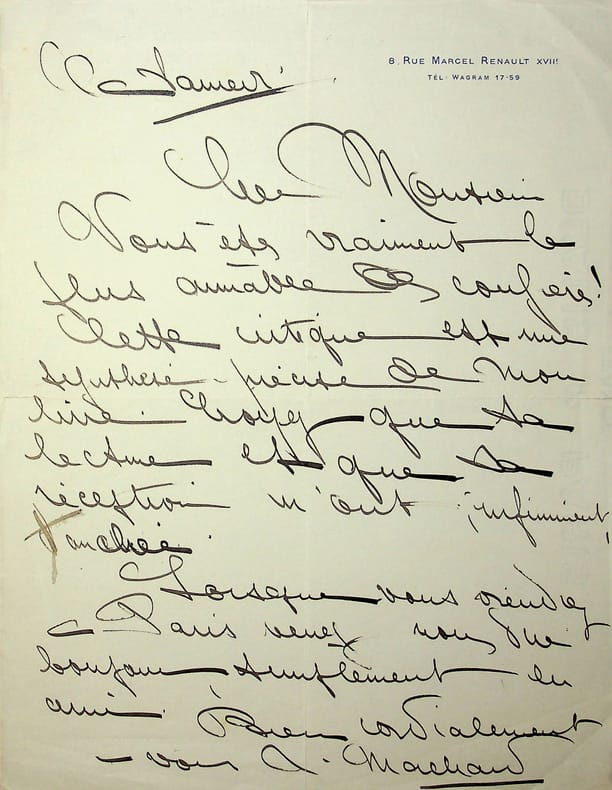 8, RUE MARCEL RENAULT XVIIE
TÉL: WAGRAM 17-59
Ce Samedi
Cher Monsieur
Vous êtes vraiment le
plus aimable des confrères!
Cette critique est une
synthèse précise de mon
livre. Croyez que sa
lecture et que sa
réception m'ont infiniment
touchée.
Lorsque vous viendrez
à Paris venez nous dire
bonjour simplement en
ami. Bien cordialement
à vous